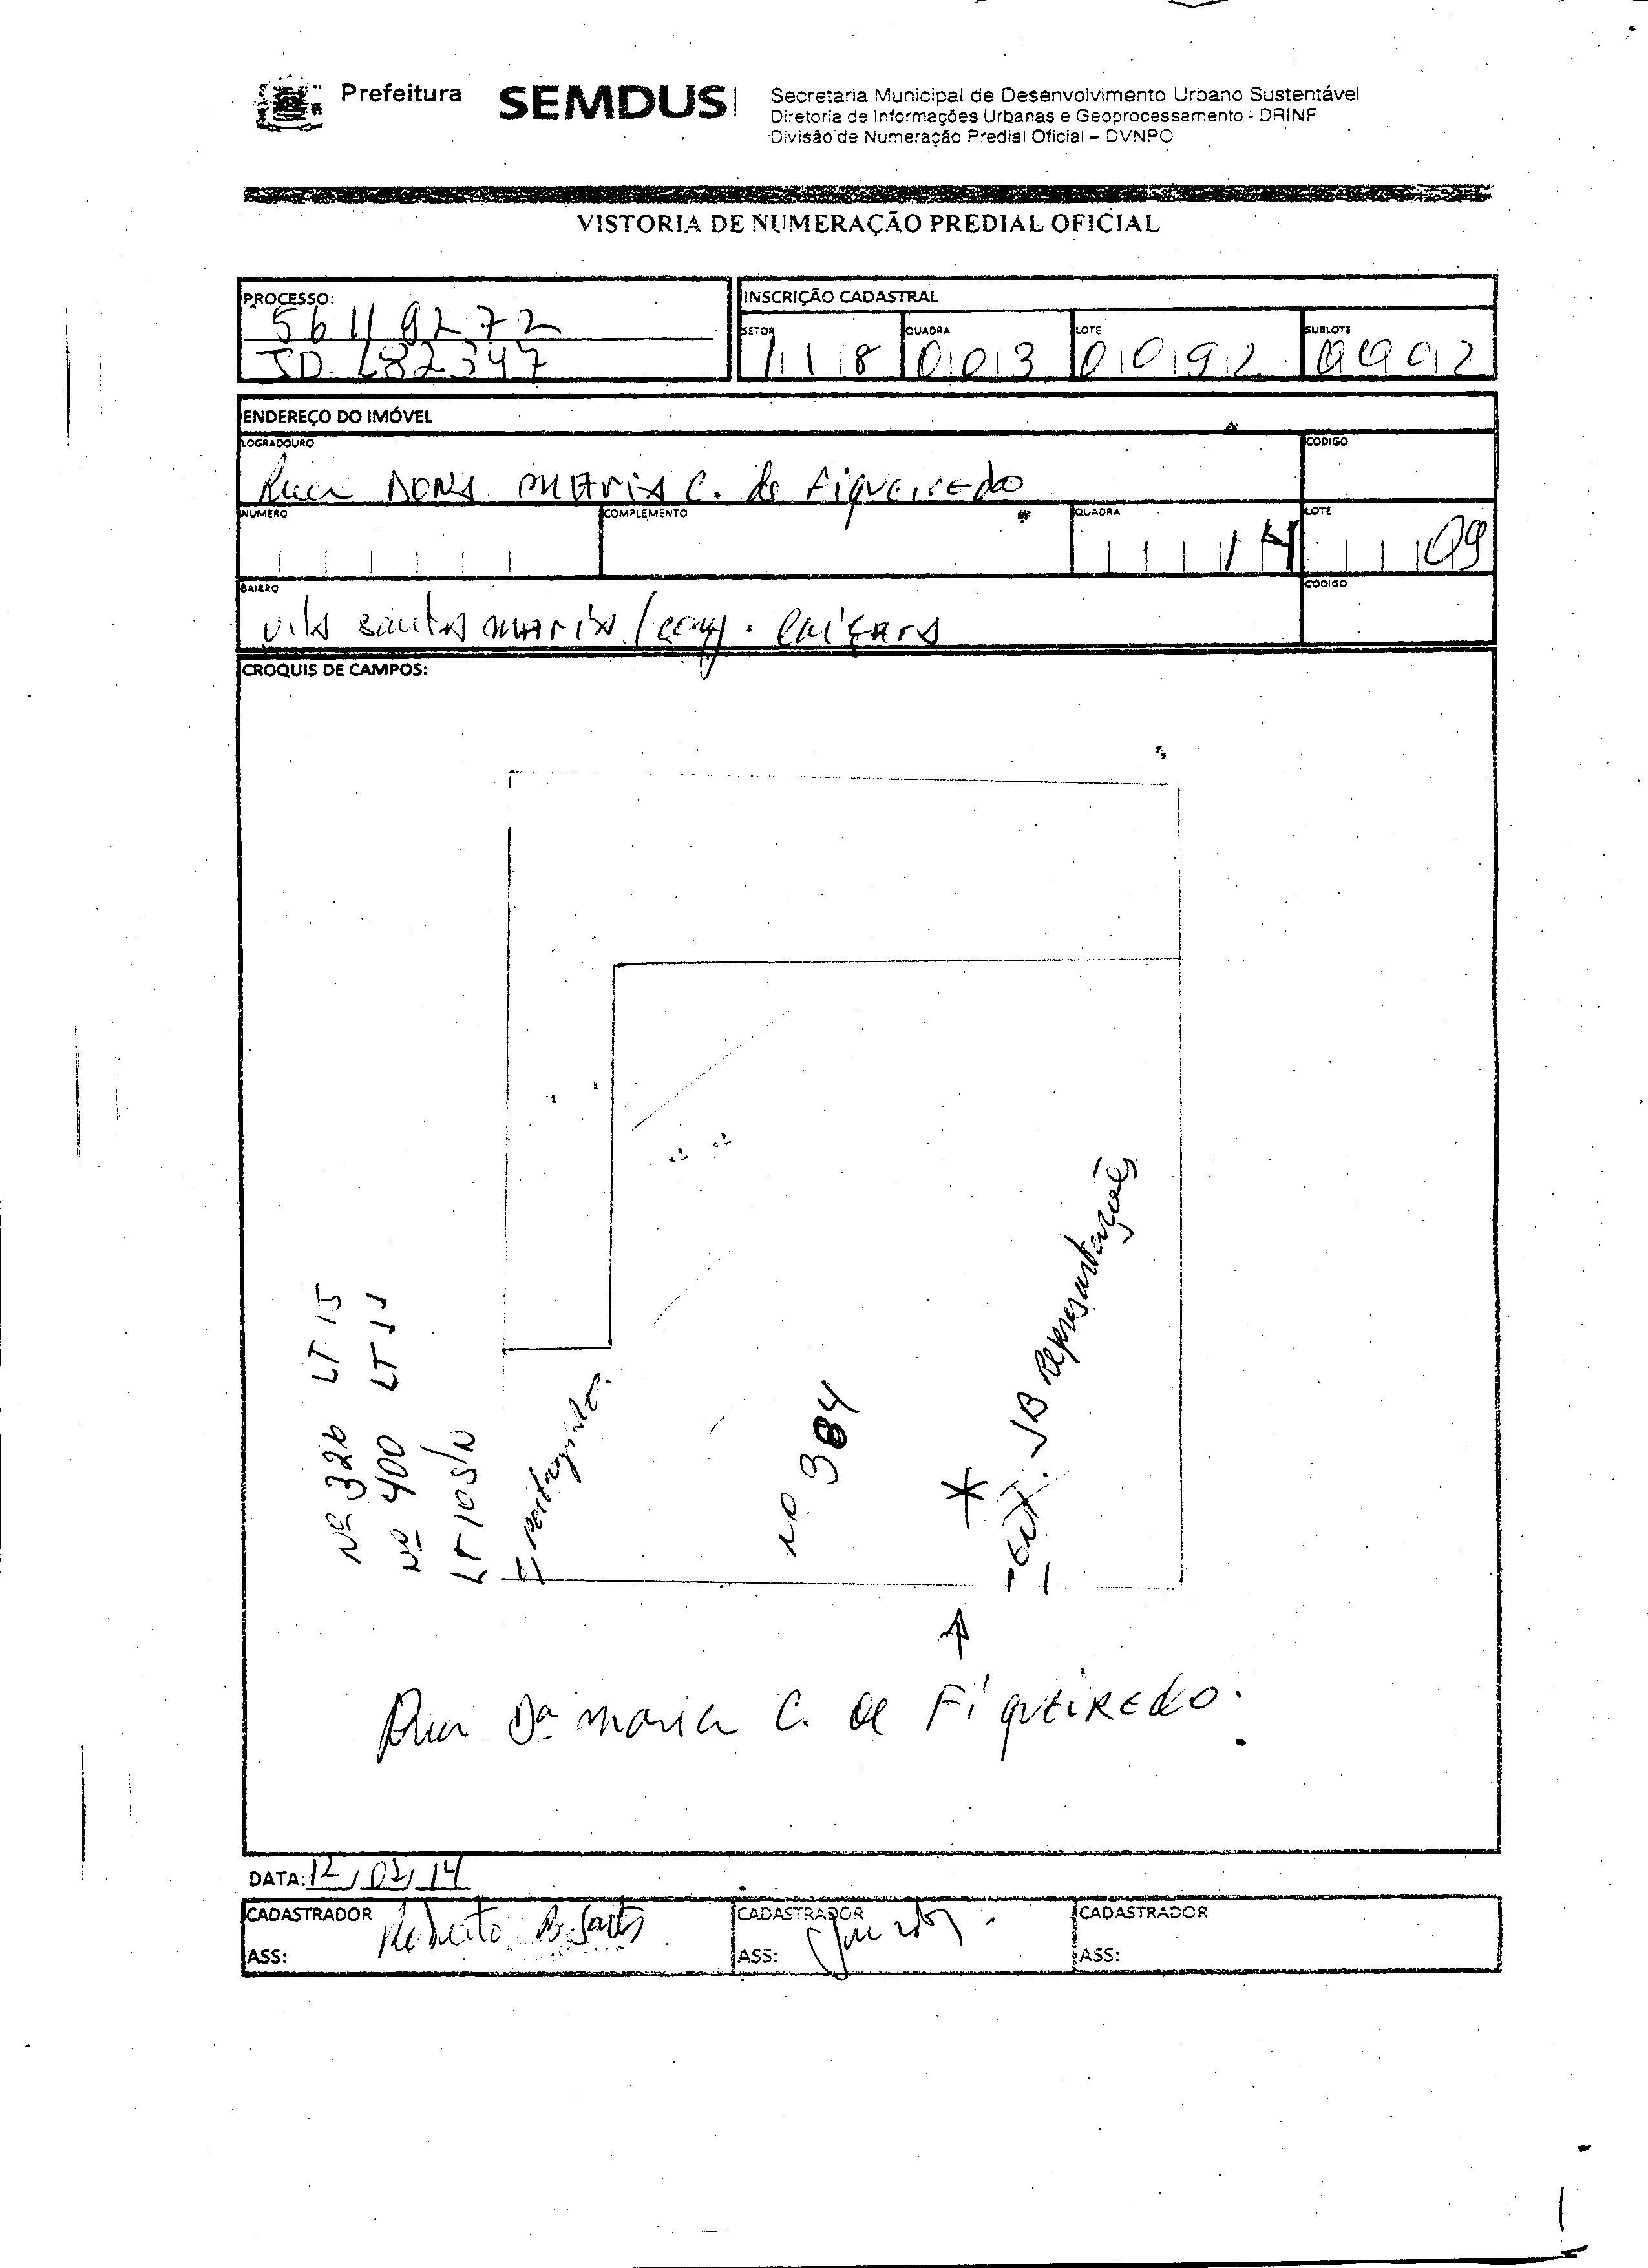 Prefeitura SEMDUS
Secretaria Municipal de Desenvolvimento Urbano Sustentável
Diretoria de Informações Urbanas e Geoprocessamento - DRINF
Divisão de Numeração Predial Oficial – DVNPO
VISTORIA DE NUMERAÇÃO PREDIAL OFICIAL
PROCESSO:
56119272
INSCRIÇÃO CADASTRAL
SETOR QUADRA LOTE SUBLOTE
118 003 0092 0002
ENDEREÇO DO IMÓVEL
LOGRADOURO CODIGO
Rua DONA MARIA C. de FiguEiREdo
NUMERO COMPLEMENTO QUADRA LOTE
14 09
BAIRRO CODIGO
Vila Santa MARIA /
CROQUIS DE CAMPOS:
Nº 326 LT 15
Nº 400 LT 11
LT 10 S/N
nº 384
* - ENT. JB Representações
Rua Dª Maria C. de FiguEiREdo.
DATA: 12/02/14
CADASTRADOR Roberto B. Santos
ASS:
CADASTRADOR
ASS:
CADASTRADOR
ASS: